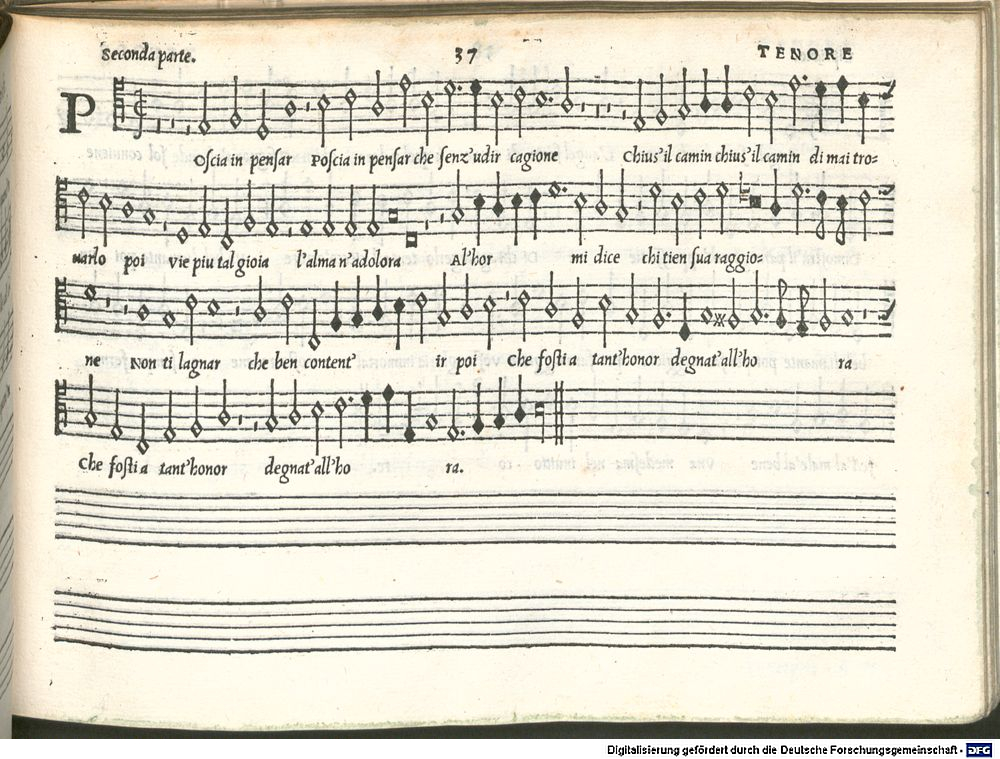 Seconda parte. 37 TENORE
P
Oscia in pensar Poscia in pensar che senz'udir cagione Chius'il camin chius'il camin di mai tro=
uarlo poi vie piu tal gioia l'alma n'adolora Al'hor mi dice chi tien sua raggio=
ne Non ti lagnar che ben content' ir poi Che fosti a tant'honor degnat'all'ho ra
Che fosti a tant'honor degnat'all'ho ra.
Digitalisierung gefördert durch die Deutsche Forschungsgemeinschaft - DFG